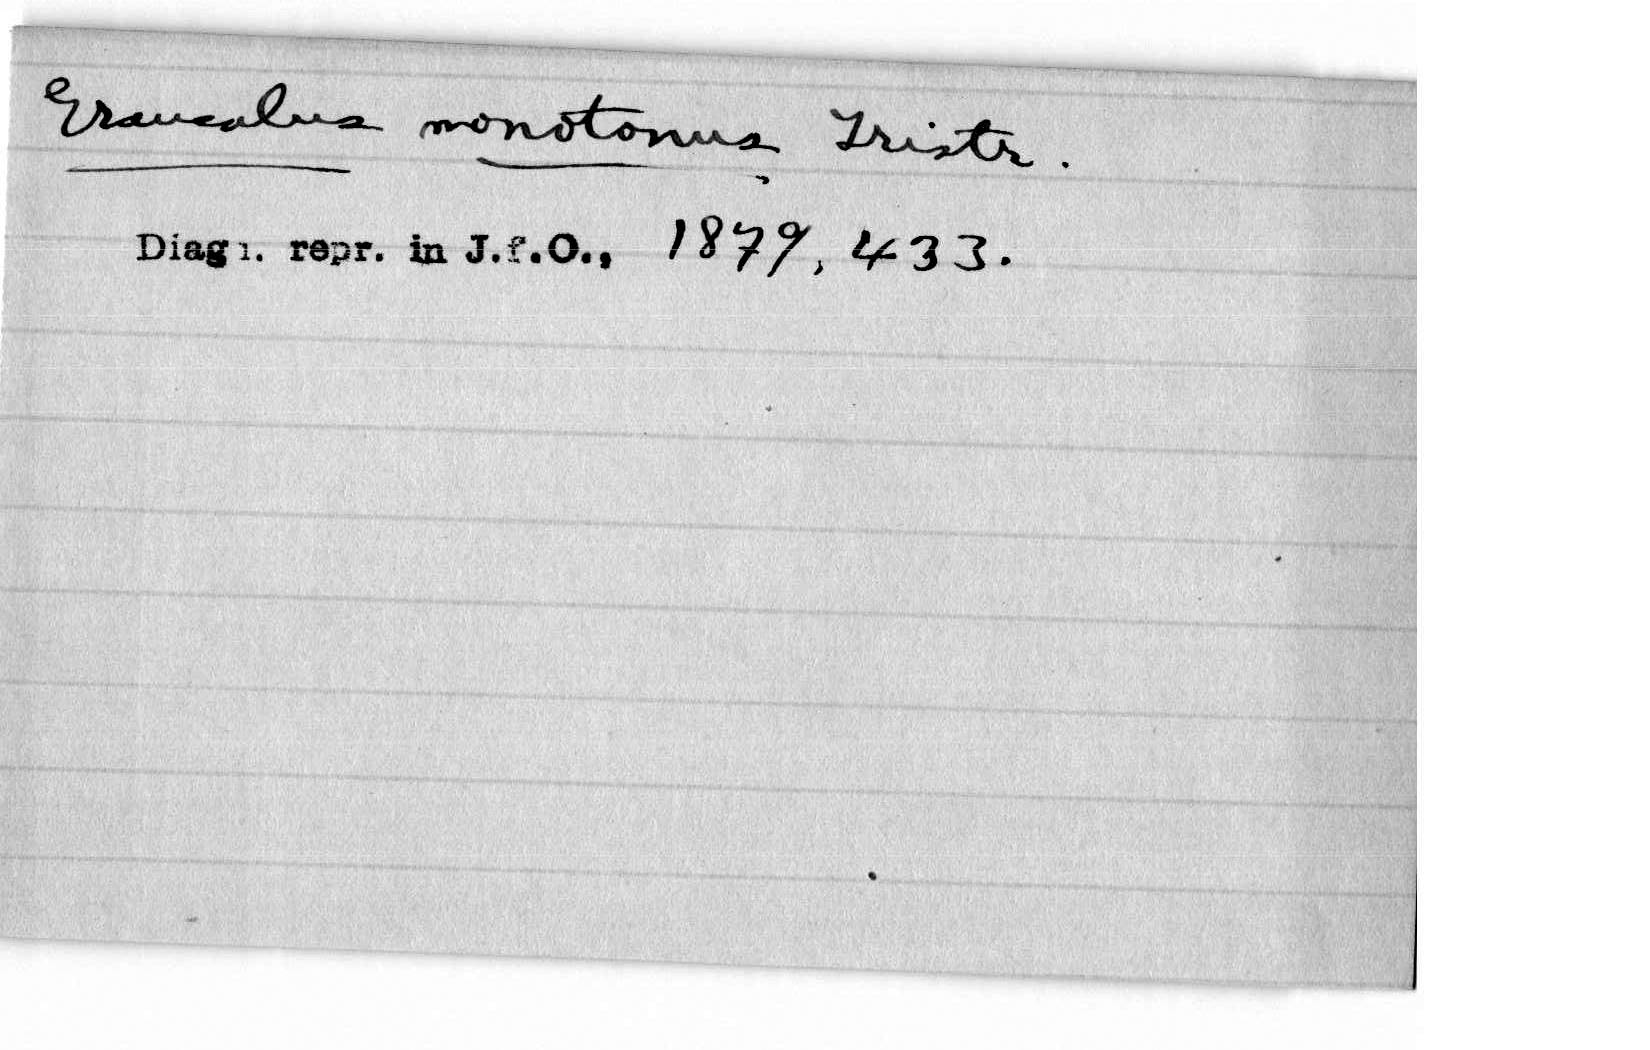 Graucalus monotonus, Tristr.
Diagn. repr. in J.f.O., 1879, 433.